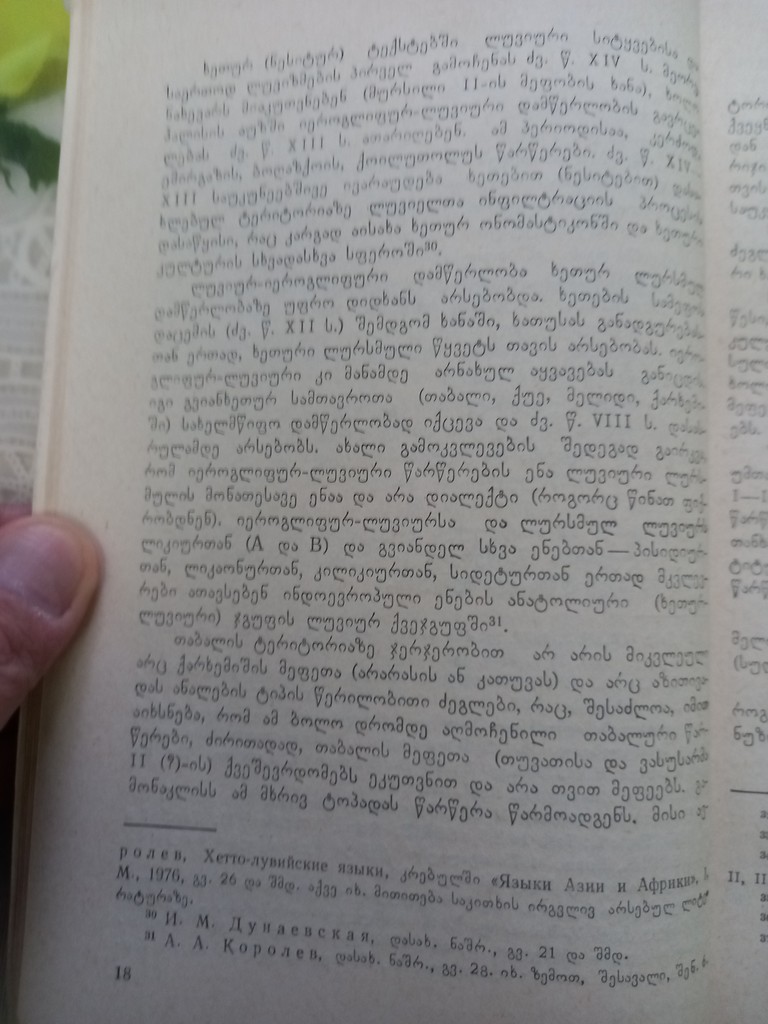 ხეთურ (ნესიტურ) ტექსტებში ლუვიური სიტყვებისა და
საერთოდ ლუვიზმების პირველ გამოჩენას ძვ. წ. XIV ს. მეორე
ნახევარს მიაკუთვნებენ (მურსილი II-ის მეფობის ხანა), ხოლო
ჰალისის აუზში იეროგლიფურ-ლუვიური დამწერლობის
ლებას ძვ. წ. XIII ს. ათარიღებენ. ამ პერიოდისაა,
ემირგაზის, ბოღაზქოის, ქოილუთოლუს წარწერები. ძვ. წ. XIV—
XIII საუკუნეებშივე ივარაუდება ხეთებით (ნესიტებით)
ხლებულ ტერიტორიაზე ლუვიელთა ინფილტრაციის პროცესის
დასაწყისი, რაც კარგად აისახა ხეთურ ონომასტიკონში და ხეთური
კულტურის სხვადასხვა სფეროში³⁰.
ლუვიურ-იეროგლიფური დამწერლობა ხეთურ ლურსმულ
დამწერლობაზე უფრო დიდხანს არსებობდა. ხეთების სამეფოს
დაცემის (ძვ. წ. XII ს.) შემდგომ ხანაში, ხათუსას განადგურებას-
თან ერთად, ხეთური ლურსმული წყვეტს თავის არსებობას. იერო-
გლიფურ-ლუვიური კი მანამდე არნახულ აყვავებას განიცდის.
იგი გვიანხეთურ სამთავროთა (თაბალი, ქუე, მელიდი, ქარხემი-
ში) სახელმწიფო დამწერლობად იქცევა და ძვ. წ. VIII ს. დასას-
რულამდე არსებობს. ახალი გამოკვლევების შედეგად გაირკვა,
რომ იეროგლიფურ-ლუვიური წარწერების ენა ლუვიური ლურს-
მულის მონათესავე ენაა და არა დიალექტი (როგორც წინათ ფიქ-
რობდნენ). იეროგლიფურ-ლუვიურსა და ლურსმულ ლუვიურს
ლიკიურთან (A და B) და გვიანდელ სხვა ენებთან — პისიდიურ-
თან, ლიკაონურთან, კილიკიურთან, სიდეტურთან ერთად მკვლევ-
რები ათავსებენ ინდოევროპული ენების ანატოლიური (ხეთურ-
ლუვიური) ჯგუფის ლუვიურ ქვეჯგუფში³¹.
თაბალის ტერიტორიაზე ჯერჯერობით არ არის მიკვლეული
არც ქარხემიშის მეფეთა (არარასის ან კათუვას) და არც აზითივა-
დას ანალების ტიპის წერილობითი ძეგლები, რაც, შესაძლოა, იმით
აიხსნება, რომ ამ ბოლო დრომდე აღმოჩენილი თაბალური წარ-
წერები, ძირითადად, თაბალის მეფეთა (თუვათისა და ვასუსარმა
II (?)-ის) ქვეშევრდომებს ეკუთვნით და არა თვით მეფეებს. გა-
მონაკლისს ამ მხრივ ტოპადას წარწერა წარმოადგენს. მისი
ролев, Хетто-лувийские языки, კრებულში «Языки Азии и Африки»,
М., 1976, გვ. 26 და შმდ. აქვე იხ. მითითება საკითხის ირგვლივ არსებულ ლიტე-
რატურაზე.
³⁰ И. М. Дунаевская, დასახ. ნაშრ., გვ. 21 და შმდ.
³¹ А. А. Королев, დასახ. ნაშრ., გვ. 28. იხ. ზემოთ, შესავალი, შენ.
18